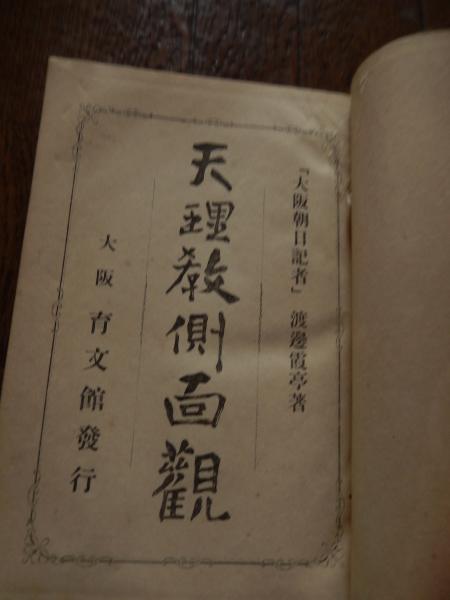 「大阪朝日記者」渡邊霞亭著
天理教側面觀
大阪育文館發行